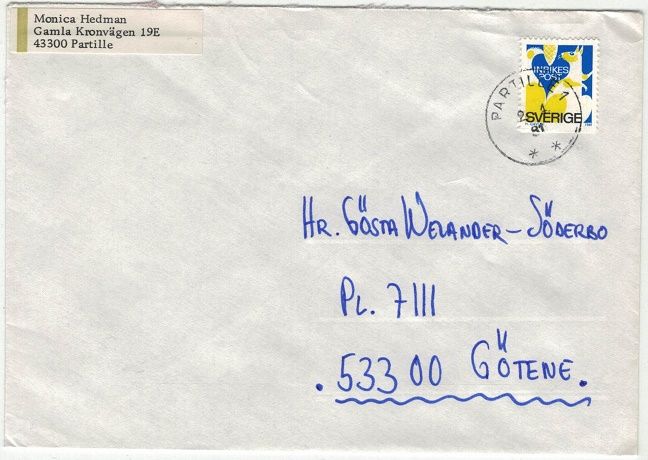 Monica Hedman
Gamla Kronvägen 19E
43300 Partille
INRIKES
POST
SVERIGE
PARTILLE 1
Hr. Gösta Welander-Söderbo
Pl. 7111
. 533 00 Götene.